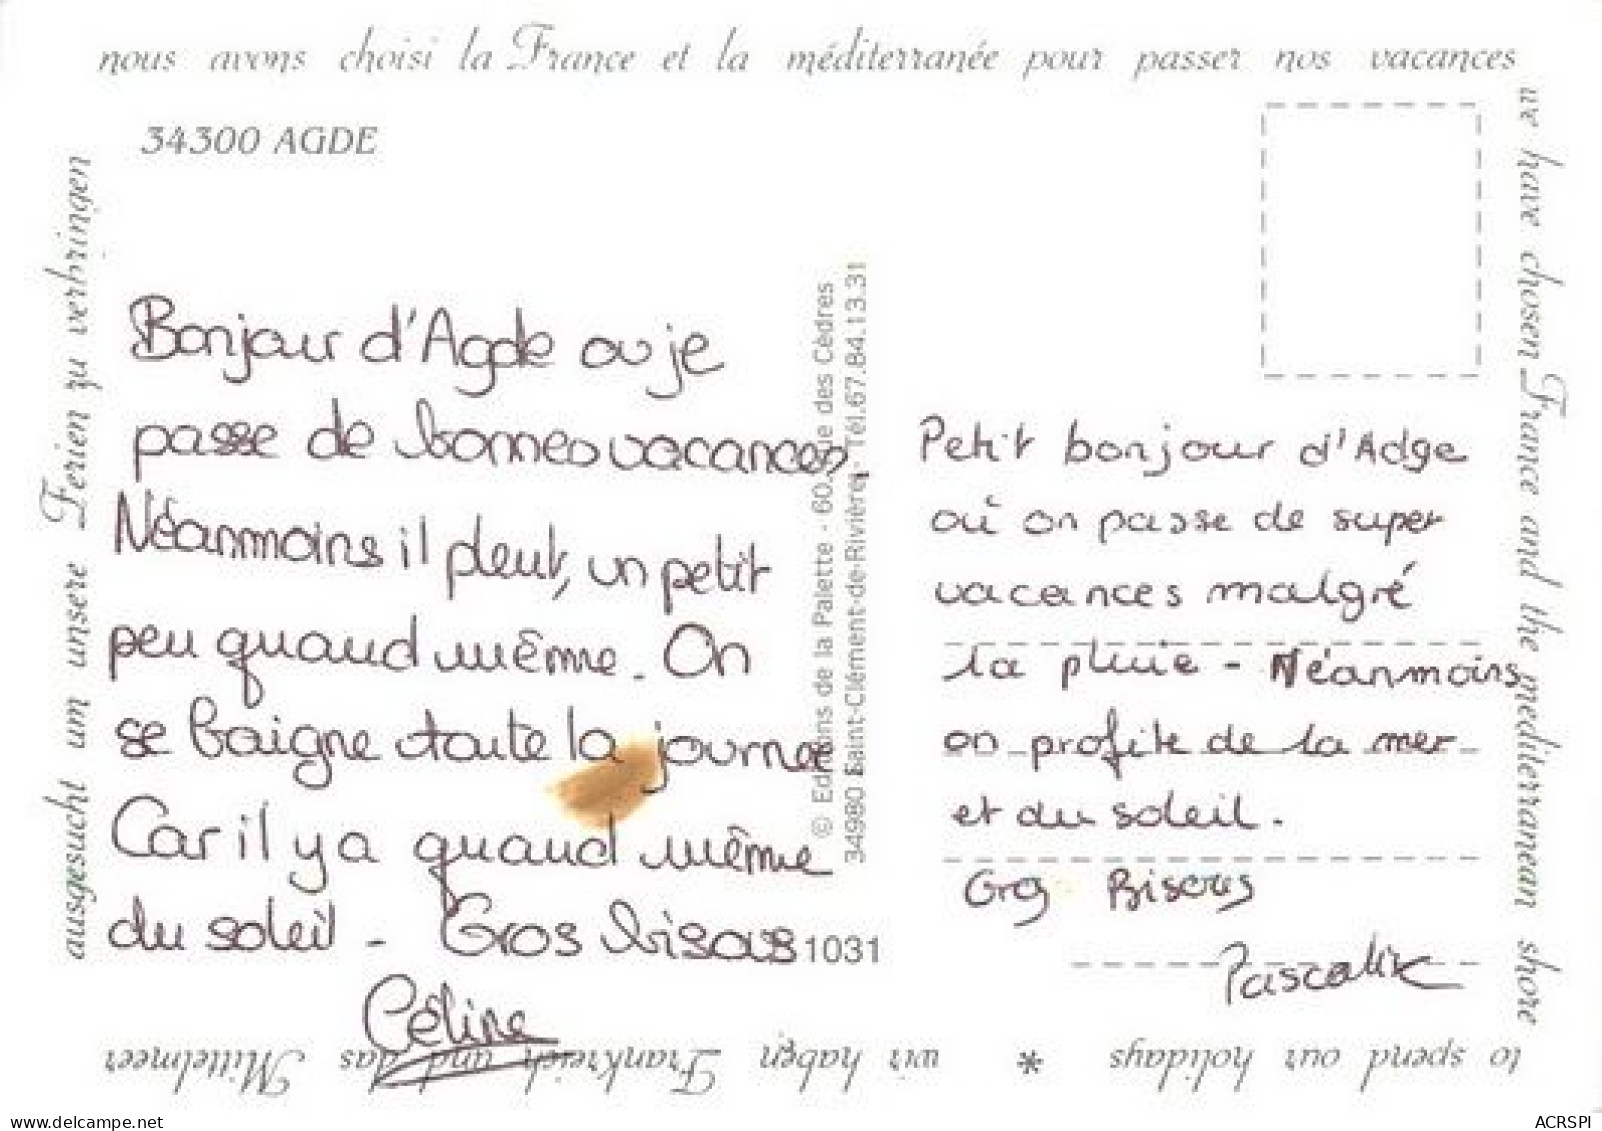 nous avons choisi la France et la méditerranée pour passer nos vacances
34300 AGDE
Bonjour d'Agde ou je
passe de bonnes vacances,
Néanmoins il pleut, un petit
peu quand même. On
se baigne toute la journée
Car il y a quand même
du soleil - Gros bisous
Céline
© Editions de la Palette - 60, rue des Cèdres
34980 Saint-Clément-de-Rivière - Tél. 67.84.13.31
1031
Petit bonjour d'Adge
où on passe de super
vacances malgré
la pluie - Néanmoins
on profite de la mer
et du soleil.
Gros Bisous
Pascaline
we have chosen France and the mediterranean shore
to spend our holidays * wir haben Frankreich und das Mittelmeer
ausgesucht um unsere Ferien zu verbringen
delcampe.net
ACRSPI